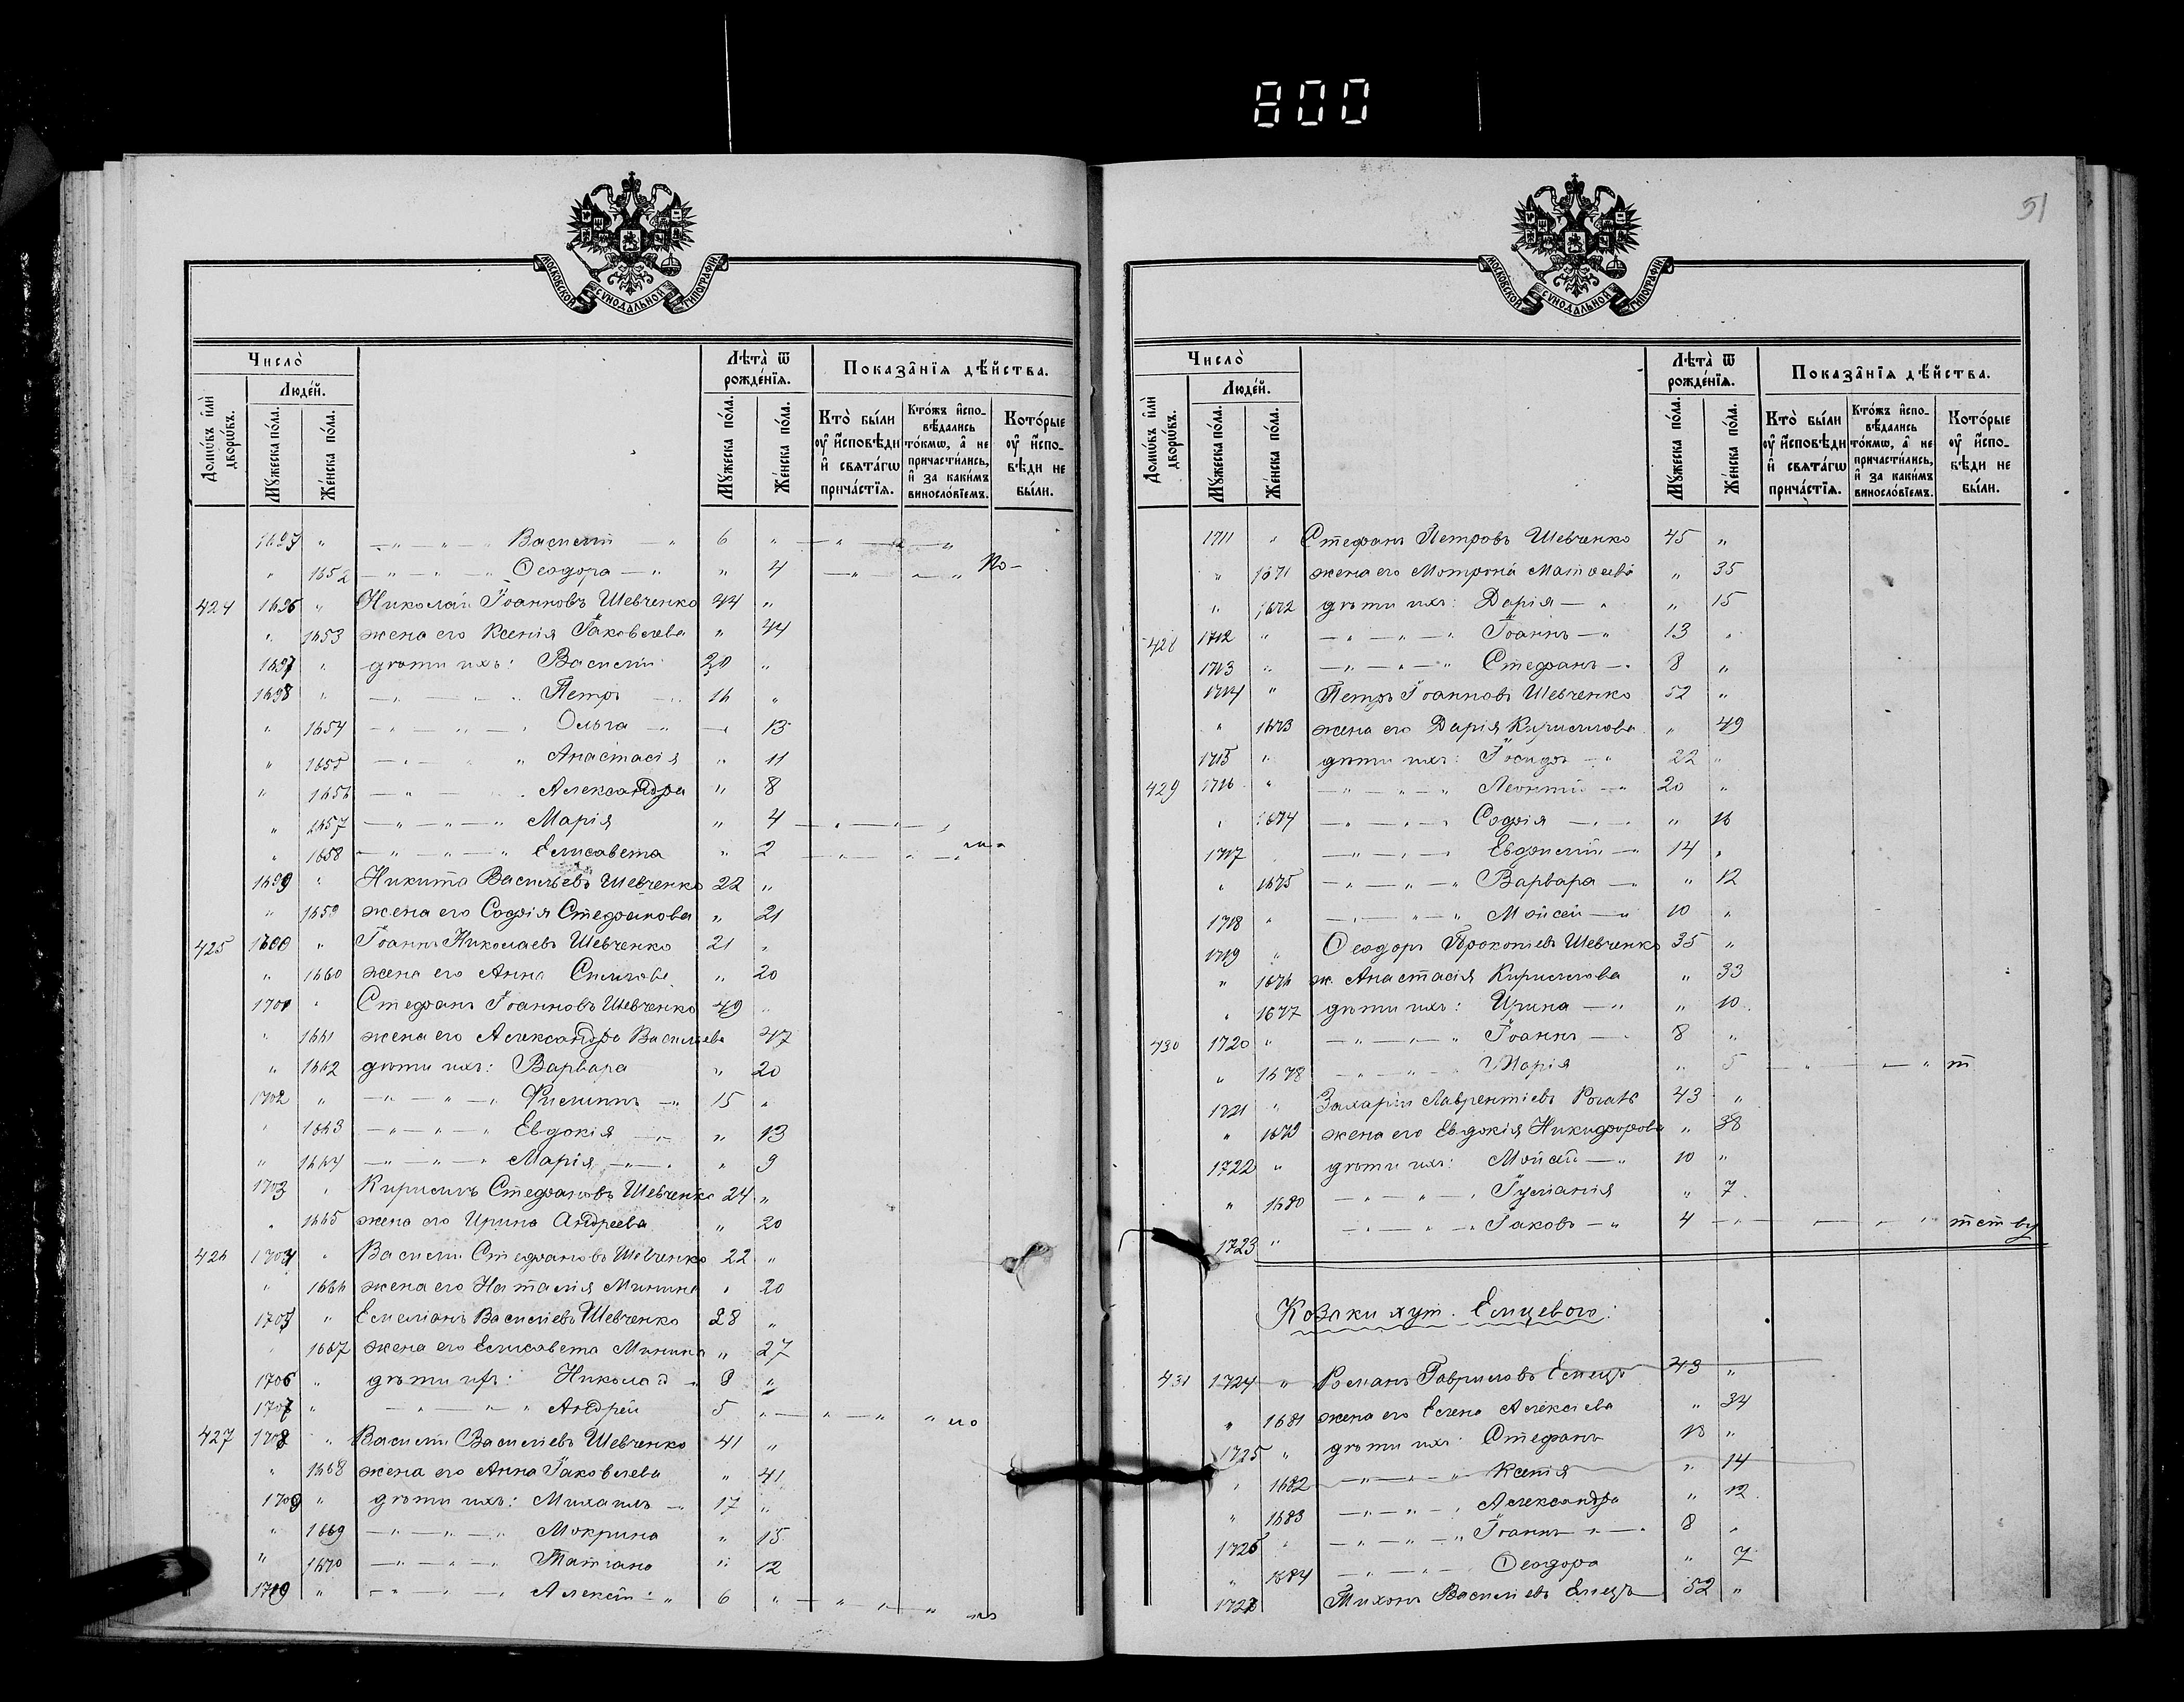 800
51
МОСКОВСКОЙ СѴНОДАЛЬНОЙ ТИПОГРАФІИ
Число̀
Люде́й.
Домѡ́въ и҆лѝ дворѡ́въ.
Мꙋ́жеска по́ла.
Же́нска по́ла.
Лѣ́та ѿ рожде́нїѧ.
Мꙋ́жеска по́ла.
Же́нска по́ла.
Показа̑нїѧ дѣ́йства.
Кто̀ бы́ли ᲂу҆ и҆сповѣ́ди и҆ свѧта́гѡ прича́стїѧ.
Кто́жъ и҆сповѣ́дались то́кмѡ, а҆ не причасти́лись, и҆ за каки́мъ виносло́вїемъ.
Кото́рые ᲂу҆ и҆сповѣ́ди не бы́ли.
" — " — " Василій — " 6 "
" 1652 — " — " — " Ѳеодора — " " 4 — " " — " по-
424 1696 " Николай Іоанновъ Шевченко 44 "
" 1653 жена его Ксенія Іаковлева " 44
1697 " дѣти ихъ: Василій 20 "
1698 " — " — " Петръ — " 16 "
" 1654 — " — " — " Ольга — " — 13
" 1655 — " — " " Анастасія " 11
" 1656 — " — " Александра " 8
" 1657 — " — " — " Марія " 4 — " — " — "
" 1658 — " — " — " Елисавета " 2 — " — " — "
1699 " Никита Васильевъ Шевченко 22 "
" 1659 жена его Софія Стефанова " 21
425 1700 " Іоаннъ Николаевъ Шевченко 21 "
" 1660 жена его Анна " 20
1701 " Стефанъ Іоанновъ Шевченко 49 "
" 1661 жена его Александра Василіева 47
" 1662 дѣти ихъ: Варвара " 20
1702 " — " — " — " Филиппъ — " 15 "
" 1663 — " — " — " Евдокія — " " 13
" 1664 — " — " — " Марія — " — " " 9
1703 " Кириллъ Стефановъ Шевченко 24 "
" 1665 жена его Ирина Андреева " 20
426 1704 " Василій Стефановъ Шевченко 22 "
" 1666 жена его Наталія Минина " 20
1705 " Емеліанъ Василіевъ Шевченко 28 "
" 1667 жена его Елисавета Минина " 27
1706 " дѣти ихъ: Николай " 9 "
1707 " — " — " — " Андрей 5 " — " — " "
427 1708 " Василій Василіевъ Шевченко 41 "
" 1668 жена его Анна Іаковлева " 41
1709 " дѣти ихъ: Михаилъ — " 17 "
" 1669 — " — " — " Мокрина " 15
" 1670 — " — " — " Татіана " 12
" — " — " — " Алексѣй — " 6 " — " — " — "
МОСКОВСКОЙ СѴНОДАЛЬНОЙ ТИПОГРАФІИ
Число̀
Люде́й.
Домѡ́въ и҆лѝ дворѡ́въ.
Мꙋ́жеска по́ла.
Же́нска по́ла.
Лѣ́та ѿ рожде́нїѧ.
Мꙋ́жеска по́ла.
Же́нска по́ла.
Показа̑нїѧ дѣ́йства.
Кто̀ бы́ли ᲂу҆ и҆сповѣ́ди и҆ свѧта́гѡ прича́стїѧ.
Кто́жъ и҆сповѣ́дались то́кмѡ, а҆ не причасти́лись, и҆ за каки́мъ виносло́вїемъ.
Кото́рые ᲂу҆ и҆сповѣ́ди не бы́ли.
1711 " Стефанъ Петровъ Шевченко 45 "
" 1671 жена его Мотрона Матѳеева " 35
" 1672 дѣти ихъ: Дарія — " " 15
428 1712 " — " — " — " Іоаннъ — " 13 "
1713 " — " — " — " Стефанъ — " 8 "
1714 " Петръ Іоанновъ Шевченко 52 "
" 1673 жена его Дарія Кириллова " 49
1715 " дѣти ихъ: Іосифъ — " 22 "
429 1716 " — " — " — " Леонтій — " 20 "
" 1674 — " — " — " Софія — " — " " 16
1717 — " — " — " Евфимій — " 14 "
" 1675 — " — " — " Варвара — " " 12
1718 " — " — " — " Мойсей — " 10 "
1719 " Ѳеодоръ Прокопіевъ Шевченко 35 "
" 1676 ж. Анастасія Кириллова " 33
" 1677 дѣти ихъ: Ирина — " " 10
430 1720 " — " — " — " Іоаннъ — " 8 "
" 1678 — " — " — " Марія " 5 — " — " — " т
1721 " Захарій Лаврентіевъ 43 "
" 1679 жена его Евдокія Никифорова " 38
1722 " дѣти ихъ: Мойсей — " 10 "
" 1680 — " — " — " Іуліанія " 7
1723 " — " — " — " Іаковъ — " 4 — " — " — "
Козаки хут. Емцевого:
431 1724 " Романъ Гавриловъ Емецъ 43 "
" 1681 жена его Елена Алексіева " 34
1725 " дѣти ихъ: Стефанъ "
" 1682 — " — " — " Ксенія " 14
" 1683 — " — " — " Александра " 12
1726 " — " — " — " Іоаннъ — " — " 8 "
" 1684 — " — " — " Ѳеодора " 7
Тихонъ Василіевъ Емецъ 52 "